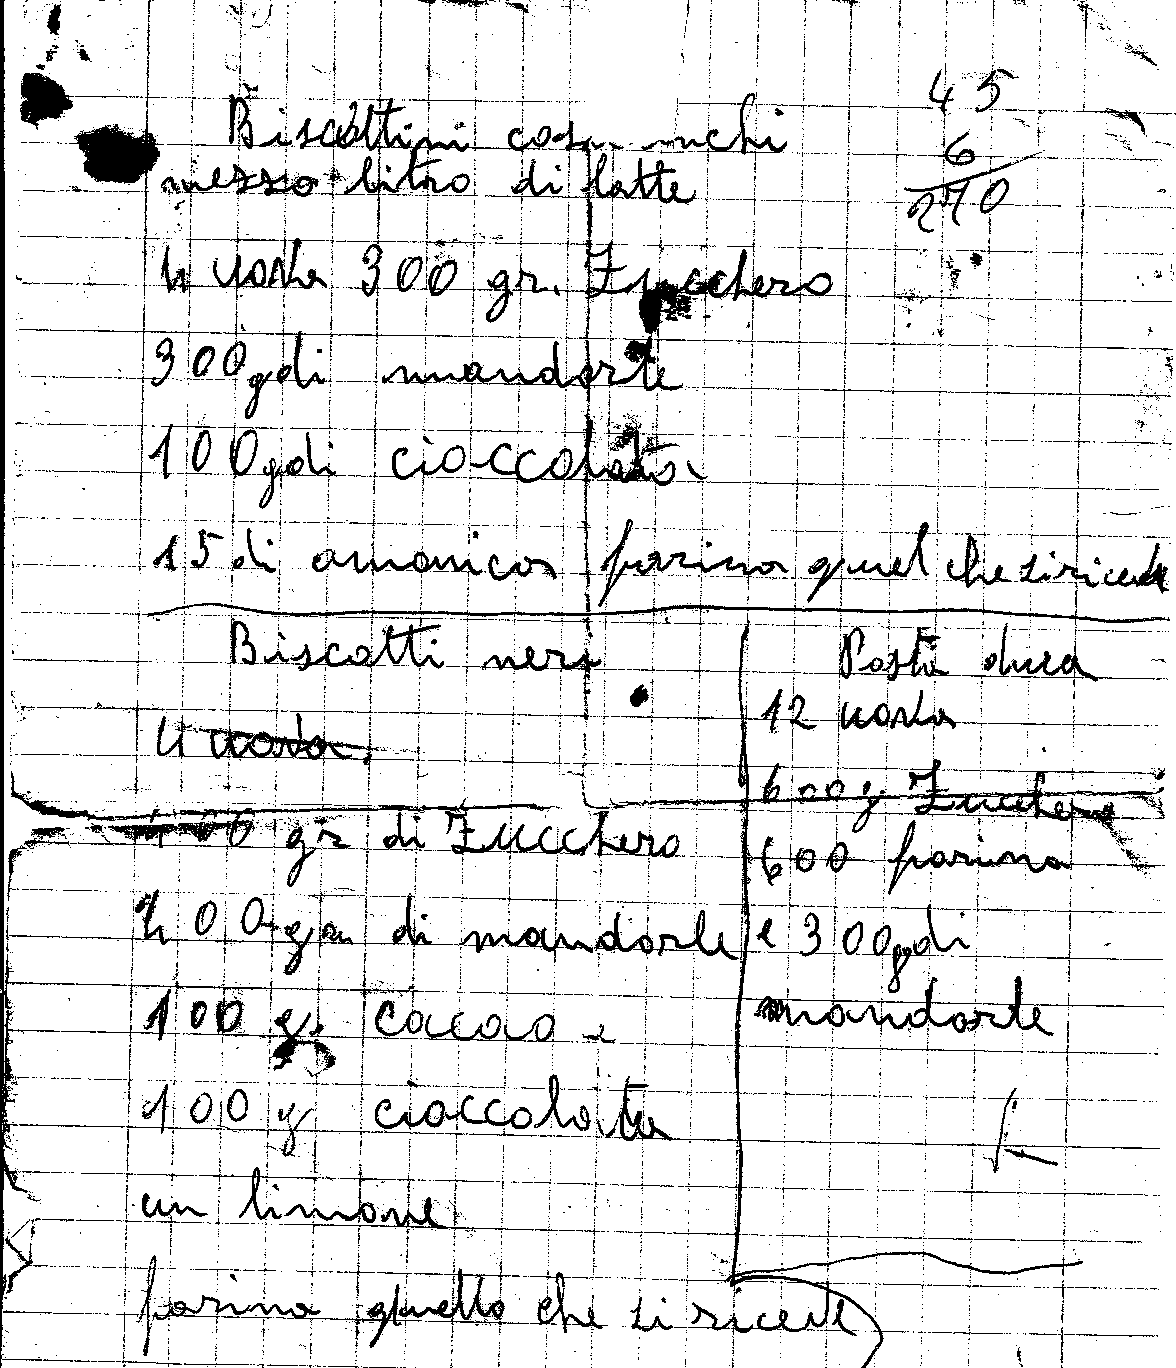 Biscottini
mezzo litro di latte
45
6
270
4 uova 300 gr. Zucchero
300 g di mandorle
100 g di cioccolata
15 di amonica farina quel che si riceve
Biscotti neri
4 uova.
400 gr di Zucchero
400 gr di mandorle
100 g. cacao
100 g cioccolata
un limone
farina quello che si riceve
Pasta dura
12 uova
600 g Zucchero
600 farina
e 300 g di
mandorle